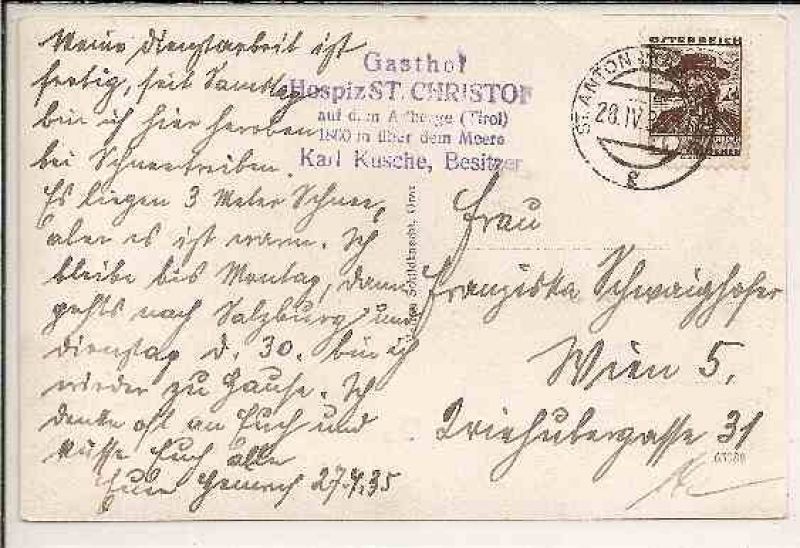 Meine Dienstarbeit ist
fertig, seit Samstag
bin ich hier heroben
bei Schneetreiben.
Es liegen 3 Meter Schnee,
aber es ist warm. Ich
bleibe bis Montag, dann
gehts nach Salzburg und
Dienstag d. 30. bin ich
wieder zu Hause. Ich
denke oft an Euch und
küsse Euch alle
Euer Heinrich 27.4.35
Gasthof
Hospiz ST. CHRISTOF
auf dem Arlberge (Tirol)
1800 m über dem Meere
Karl Kusche, Besitzer
ÖSTERREICH
ST. ANTON
28.IV.
g
Schildknecht,
Frau
Franziska Schwaighofer
Wien 5,
Kriehubergasse 31